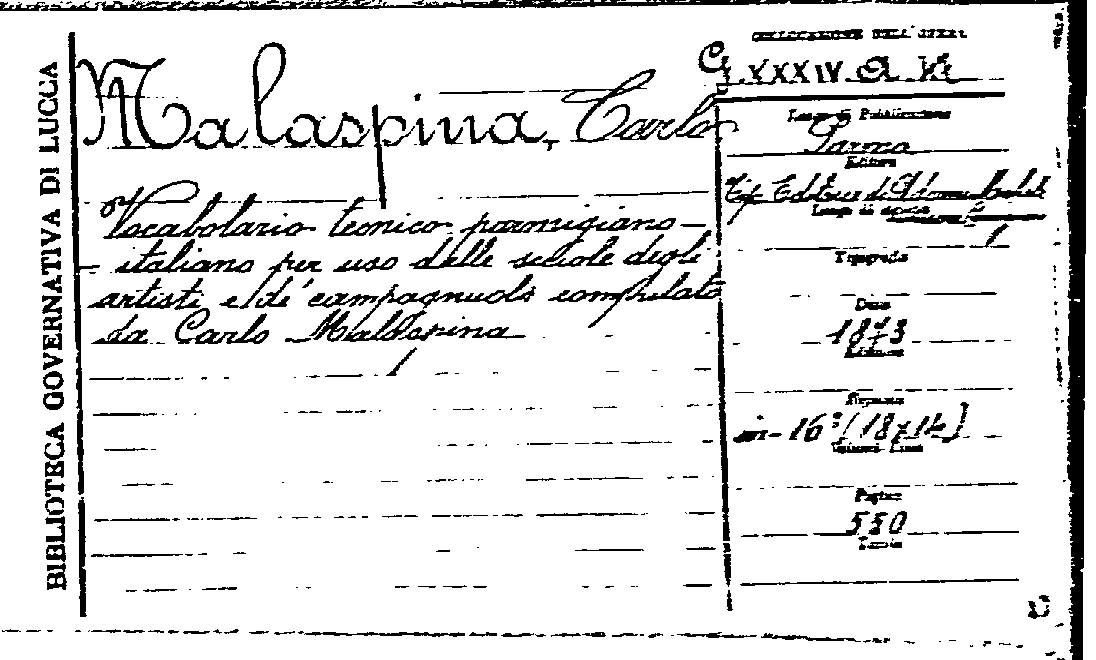 BIBLIOTECA GOVERNATIVA DI LUCCA
Malaspina, Carlo
Vocabolario tecnico parmigiano-
italiano per uso delle scuole degli
artisti e de' campagnuoli compilato
da Carlo Malaspina
COLLOCAZIONE DELL'OPERA
G. XXXIV. a
Luogo di Pubblicazione
Parma
Editore
Tip. Editrice di
Luogo di stampa
Tipografia
Data
1873
Edizione
Formato
in-16° (18x14)
Volumi
Pagine
550
Tavole